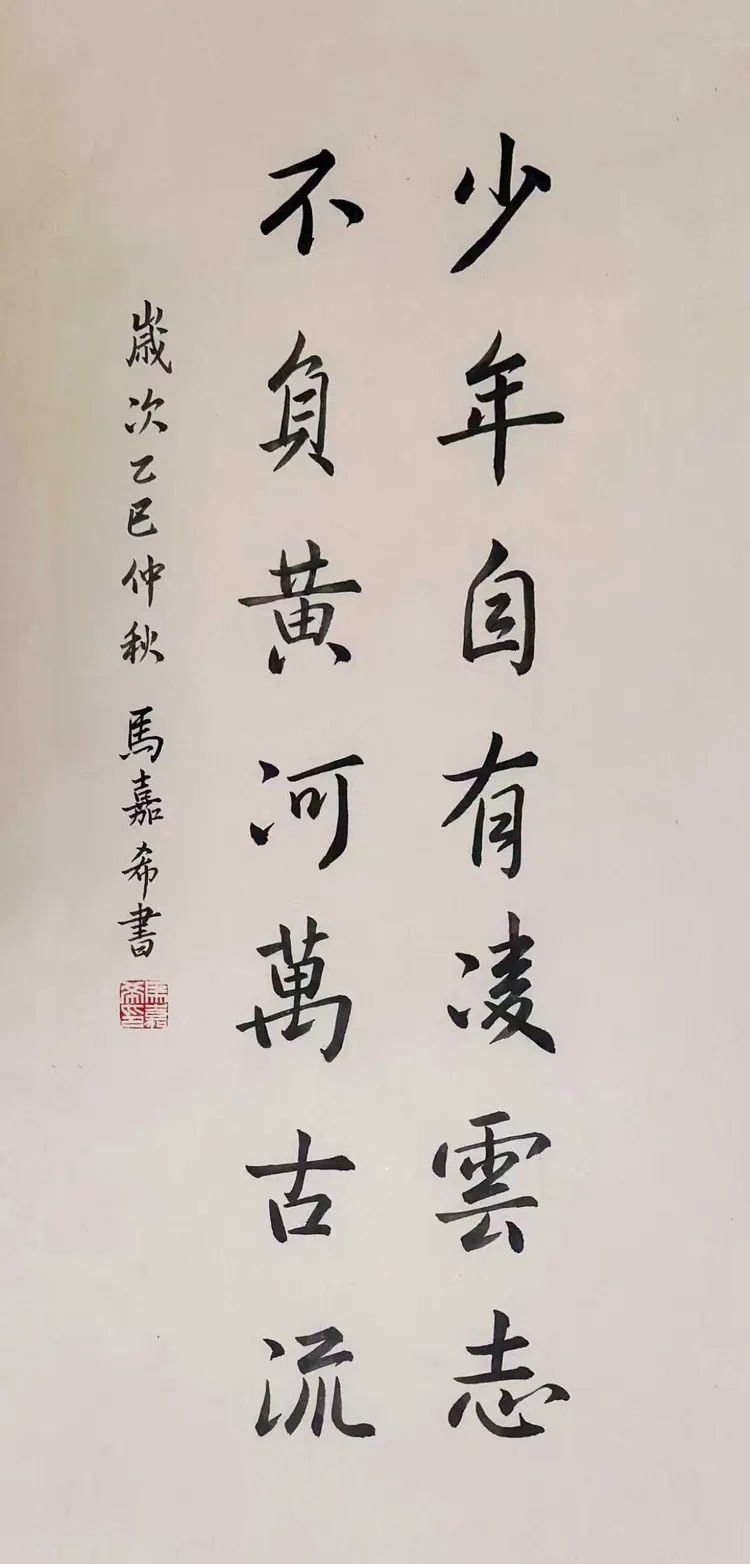 少年自有凌雲志
不負黃河萬古流
歲次乙巳仲秋 馬嘉希書
馬嘉希印